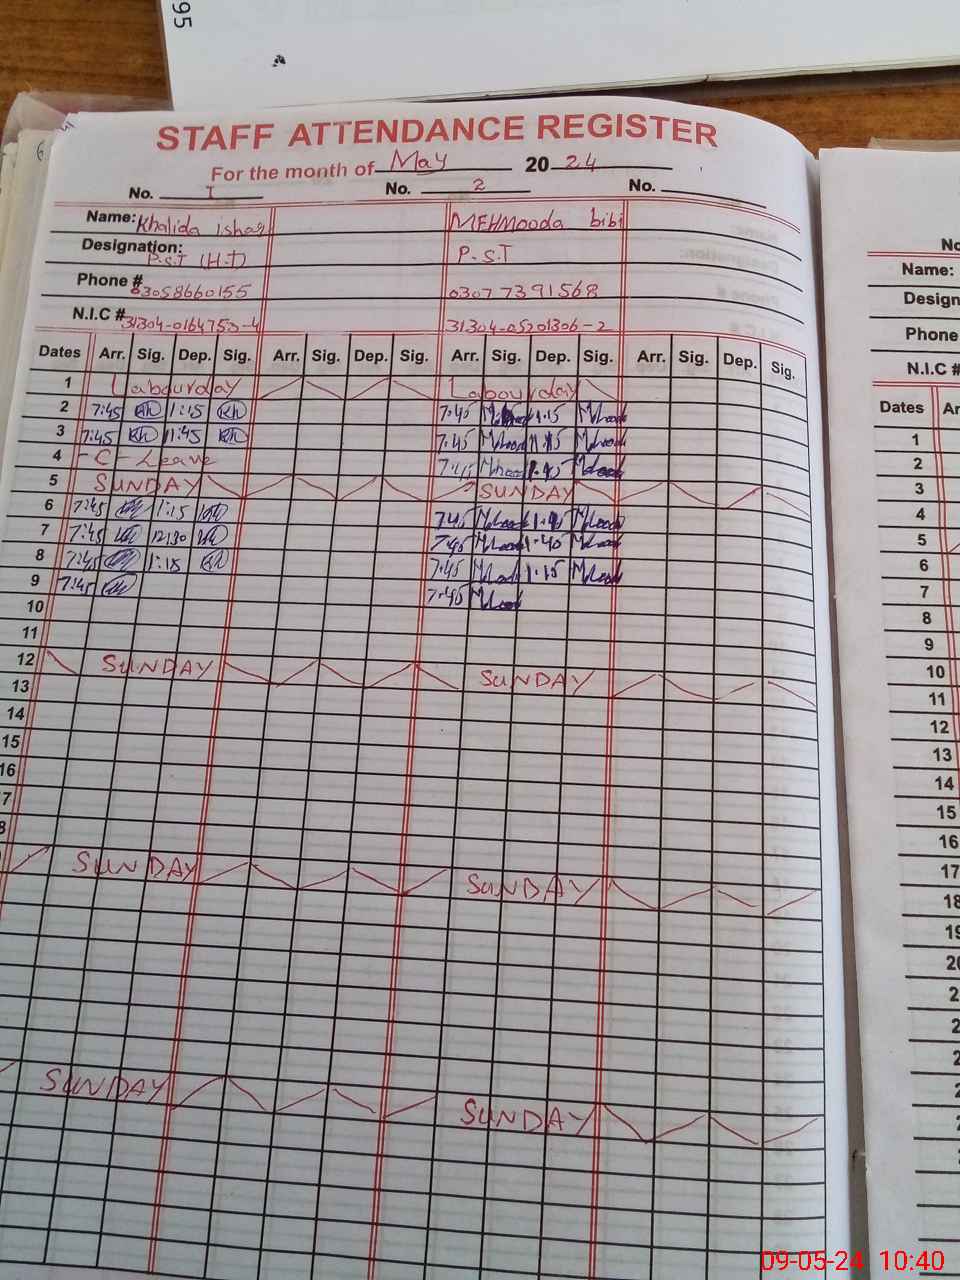 95
STAFF ATTENDANCE REGISTER
For the month of May 2024
No. 1 No. 2 No.
Name: Khalida ishaq MEHMooda bibi
Designation: P.S.T (H.T) P.S.T
Phone # 03058660155 03077391568
N.I.C # 31304-0164753-4 31304-05201306-2
Dates Arr. Sig. Dep. Sig. Arr. Sig. Dep. Sig. Arr. Sig. Dep. Sig. Arr. Sig. Dep. Sig.
1 Labourday Labourday
2 7:45 Kh 1:15 Kh 7:45 1:15
3 7:45 Kh 11:45 Kh 7:45
4 - C - Leave 7:45
5 SUNDAY SUNDAY
6 7:45 1:15 7:45
7 7:45 12:30 7:45 1:40
8 7:45 1:15 Kh 7:45 1:15
9 7:45 7:45
10
11
12 SUNDAY SUNDAY
13
14
15
16
7
8
SUNDAY SUNDAY
SUNDAY SUNDAY
No
Name:
Design
Phone
N.I.C #
Dates Ar
1
2
3
4
5
6
7
8
9
10
11
12
13
14
15
16
17
18
19
20
2
2
2
2
2
09-05-24 10:40